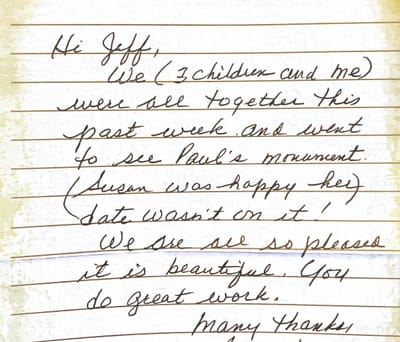 Hi Jeff,
We (3 children and me)
were all together this
past week and went
to see Paul's monument.
(Susan was happy her)
date wasn't on it!
We are all so pleased
it is beautiful. You
do great work.
Many thanks